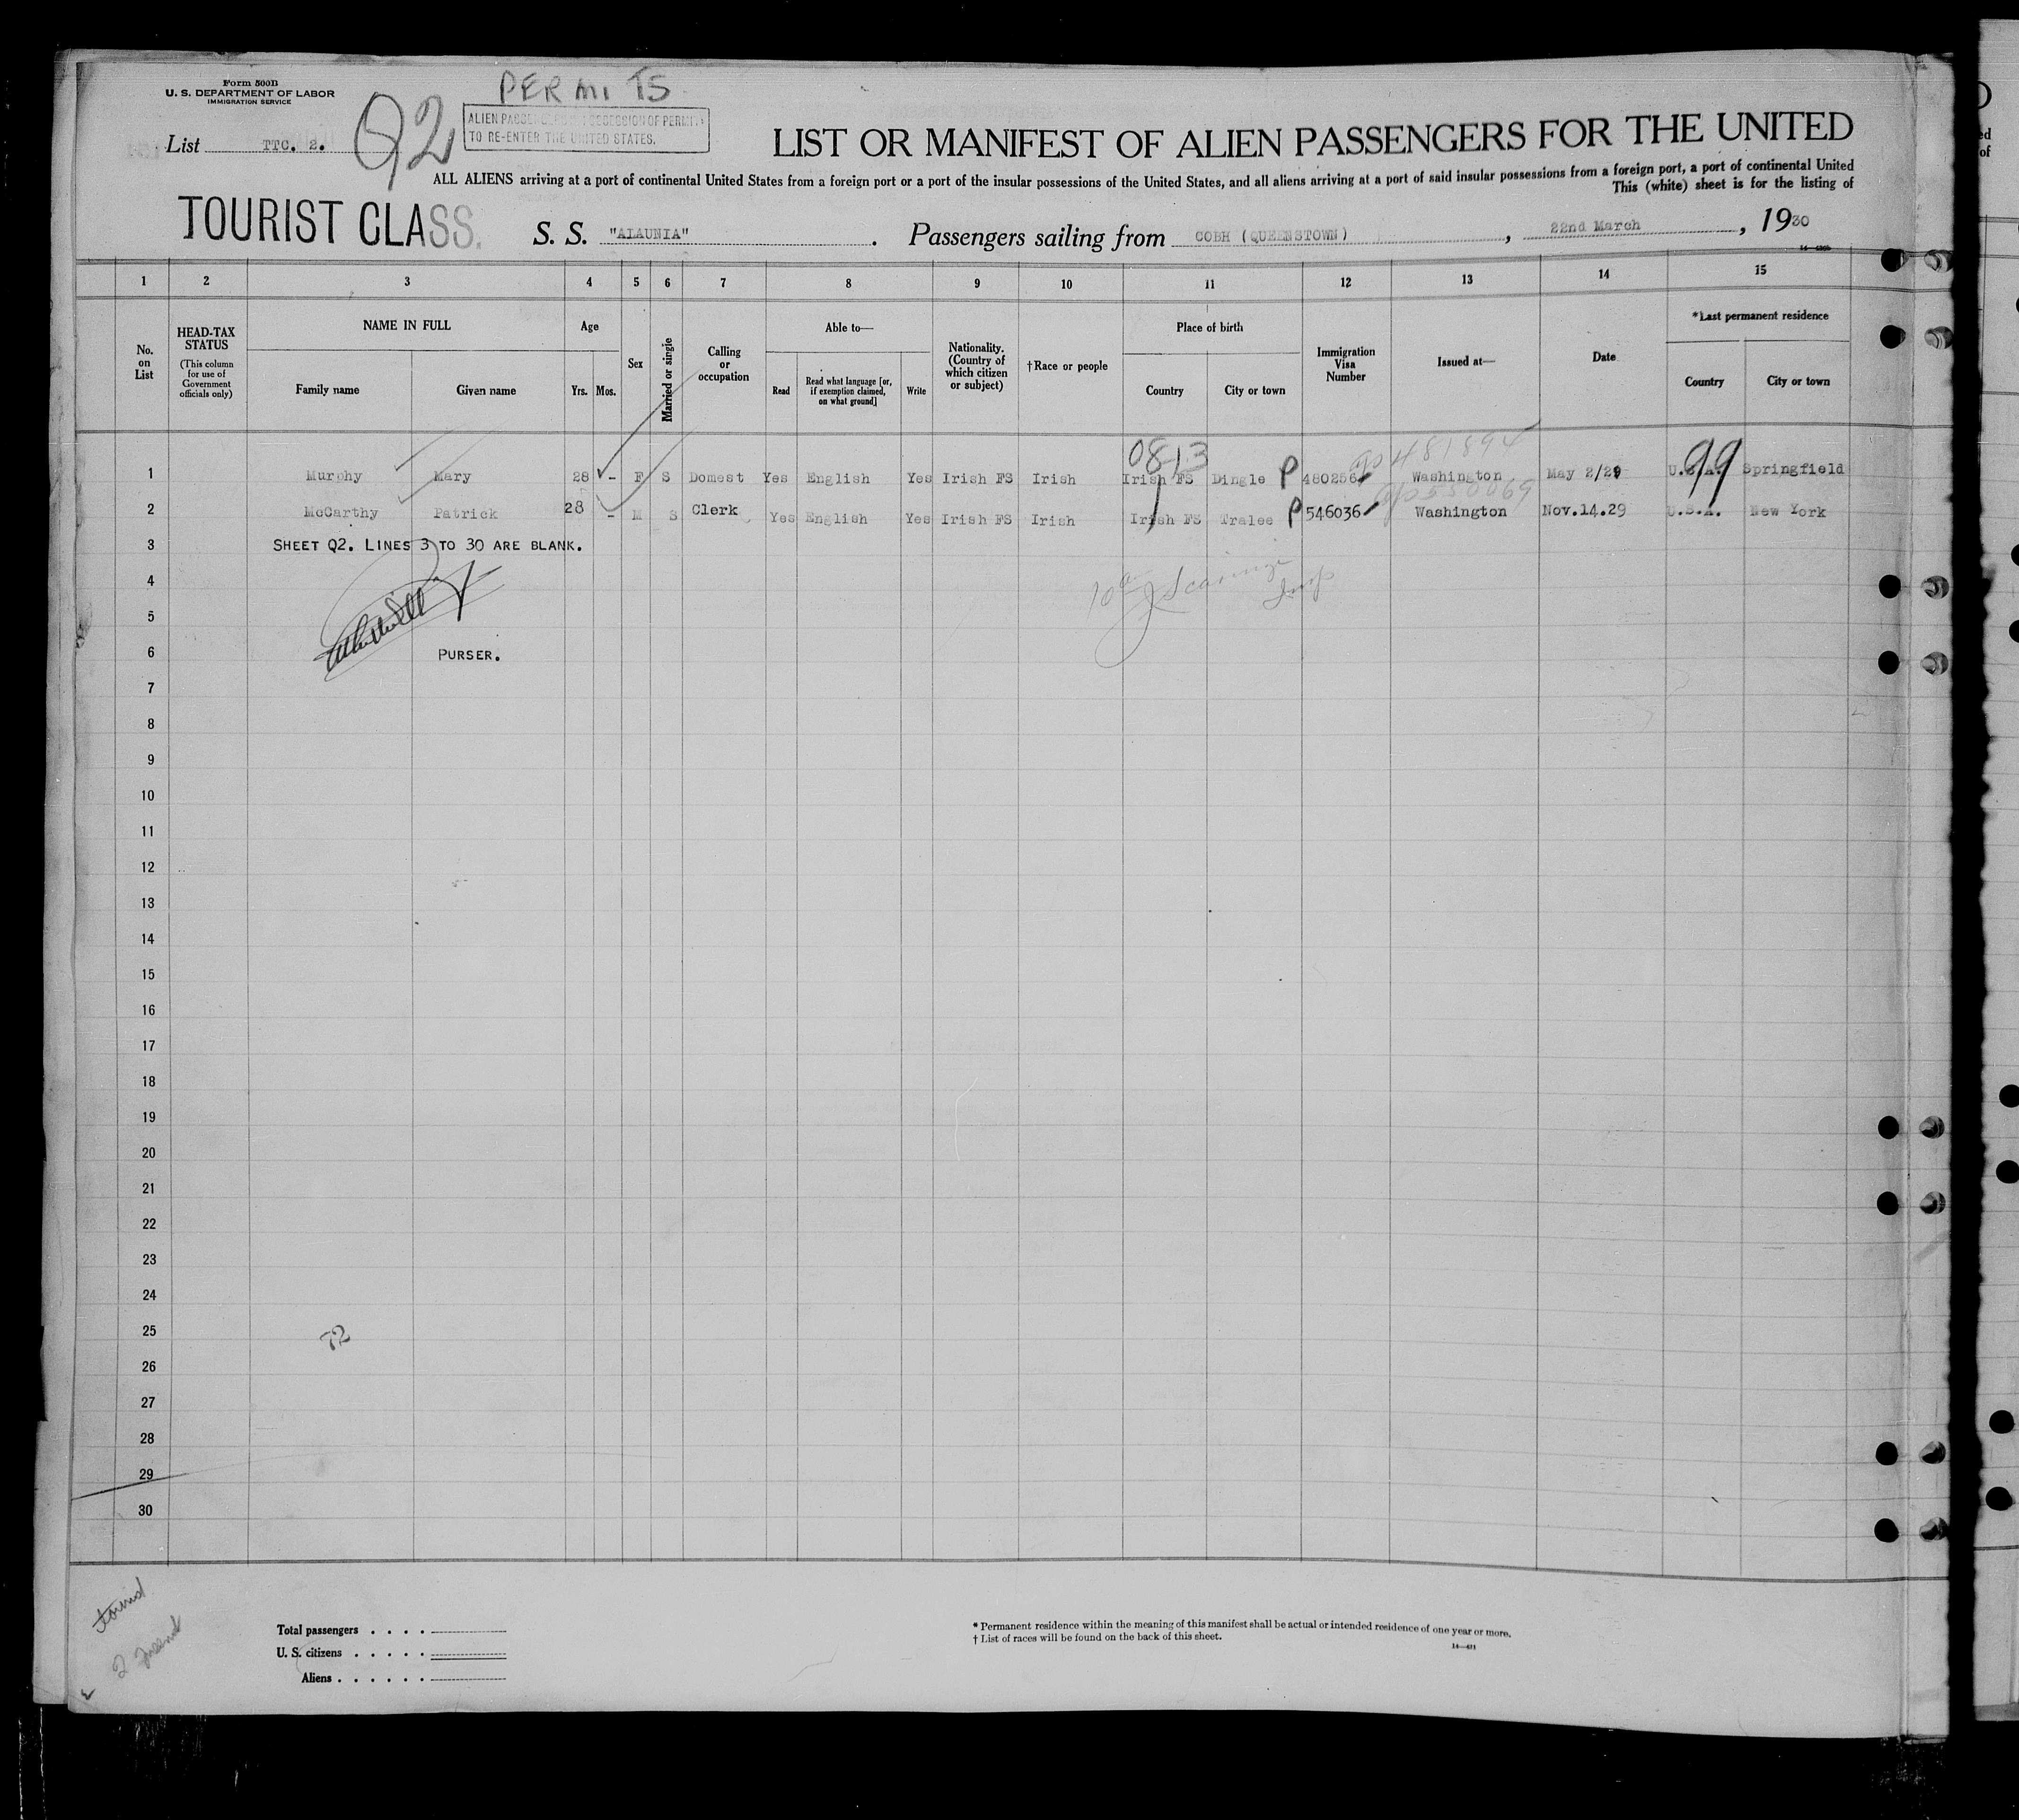 Form 500B
U. S. DEPARTMENT OF LABOR
IMMIGRATION SERVICE
PERMITS
List TTC. 2.
Q2
ALIEN PASSENGERS IN POSSESSION OF PERMITS
TO RE-ENTER THE UNITED STATES.
LIST OR MANIFEST OF ALIEN PASSENGERS FOR THE UNITED
ALL ALIENS arriving at a port of continental United States from a foreign port or a port of the insular possessions of the United States, and all aliens arriving at a port of said insular possessions from a foreign port, a port of continental United
This (white) sheet is for the listing of
TOURIST CLASS. S. S. "ALAUNIA" . Passengers sailing from COBH (QUEENSTOWN) , 22nd March , 1930
1 2 3 4 5 6 7 8 9 10 11 12 13 14 15
No. on List
HEAD-TAX STATUS
(This column for use of Government officials only)
NAME IN FULL
Family name Given name
Age
Yrs. Mos.
Sex
Married or single
Calling or occupation
Able to—
Read
Read what language [or, if exemption claimed, on what ground]
Write
Nationality. (Country of which citizen or subject)
†Race or people
Place of birth
Country City or town
Immigration Visa Number
Issued at—
Date
*Last permanent residence
Country City or town
0813 481894 99
1 Murphy Mary 28 - F S Domest Yes English Yes Irish FS Irish Irish FS Dingle P 480256 Washington May 2/29 U.S.A. Springfield
2 McCarthy Patrick 28 - M S Clerk Yes English Yes Irish FS Irish Irish FS Tralee P 546036 Washington Nov.14.29 U.S.A. New York
3 SHEET Q2. LINES 3 TO 30 ARE BLANK.
4
5
6 PURSER.
7
8
9
10
11
12
13
14
15
16
17
18
19
20
21
22
23
24
25
72
26
27
28
29
30
Total passengers . . . .
U. S. citizens . . . . .
Aliens . . . . . .
* Permanent residence within the meaning of this manifest shall be actual or intended residence of one year or more.
† List of races will be found on the back of this sheet.